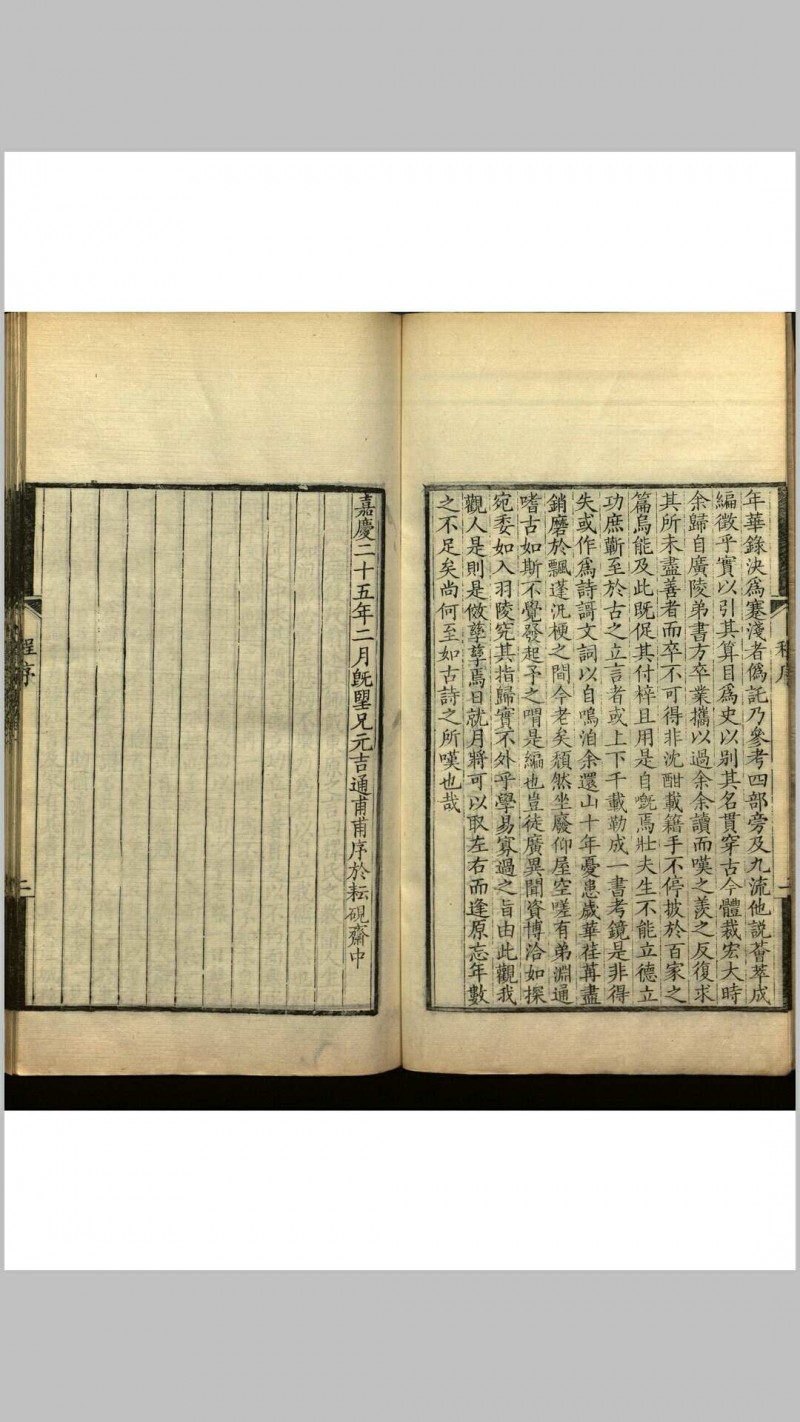 年華錄決爲塞淺者僞託乃參考四部旁及九流他說薈萃成
編徵乎實以引其算目爲史以別其名貫穿古今體裁宏大時
余歸自廣陵弟書方卒業攜以過余余讀而嘆之羨之反復求
其所未盡善者而卒不可得非沈酣載籍手不停披於百家之
篇烏能及此既促其付梓且用是自嘅焉壯夫生不能立德立
功庶蘄至於古之立言者或上下千載勒成一書考鏡是非得
失或作爲詩謌文詞以自鳴洎余還山十年憂患歲華荏苒盡
銷磨於飄蓬汎梗之間今老矣頹然坐廢仰屋空嗟有弟淵通
嗜古如斯不覺發起予之喟是編也豈徒廣異聞資博洽如探
宛委如入羽陵究其指歸實不外乎學易寡過之旨由此觀我
觀人是則是傚孳孳焉日就月將可以取左右而逢原忘年數
之不足矣尚何至如古詩之所嘆也哉
程序
二
嘉慶二十五年二月旣朢兄元吉通甫甫序於耘硯齋中
程序
二